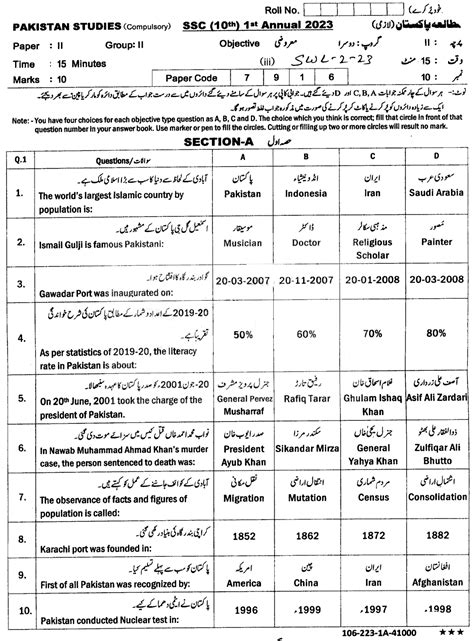 Roll No.
PAKISTAN STUDIES (Compulsory) SSC (10th) 1st Annual 2023 مطالعہ پاکستان (لازمی)
Paper : II Group: II Objective معروضی گروپ: دوسرا پرچہ : II
Time : 15 Minutes (iii) SWL-2-23 وقت : 15 منٹ
Marks : 10 Paper Code 7 9 1 6 نمبر : 10
Note: - You have four choices for each objective type question as A, B, C and D. The choice which you think is correct; fill that circle in front of that
question number in your answer book. Use marker or pen to fill the circles. Cutting or filling up two or more circles will result no mark.
SECTION-A حصہ اول
Q.1 Questions/ سوالات A B C D
آبادی کے لحاظ سے دنیا کا سب سے بڑا اسلامی ملک ہے۔ پاکستان انڈونیشیاء ایران سعودی عرب
1. The world's largest Islamic country by Pakistan Indonesia Iran Saudi Arabia
population is:
اسمٰعیل گل جی پاکستان کے مشہور ہیں۔ موسیقار ڈاکٹر مذہبی سکالر مصور
2. Ismail Gulji is famous Pakistani: Musician Doctor Religious Painter
Scholar
گوادر بندرگاہ کا افتتاح ہوا۔
3. Gawadar Port was inaugurated on: 20-03-2007 20-11-2007 20-01-2008 20-03-2008
2019-20 کے اعداد و شمار کے مطابق پاکستان کی شرح خواندگی
تقریباً ہے۔
4. 50% 60% 70% 80%
As per statistics of 2019-20, the literacy
rate in Pakistan is about:
20-جون 2001ء کو صدر پاکستان کا عہدہ سنبھالا۔ جنرل پرویز مشرف رفیق تارڑ غلام اسحاق خان آصف علی زرداری
5. On 20th June, 2001 took the charge of the General Pervez Rafiq Tarar Ghulam Ishaq Asif Ali Zardari
president of Pakistan. Musharraf Khan
نواب محمد احمد خاں قتل کیس میں سزائے موت دی گئی۔ صدر ایوب خان سکندر مرزا جنرل یحییٰ خاں ذوالفقار علی بھٹو
6. In Nawab Muhammad Ahmad Khan's murder President Sikandar Mirza General Zulfiqar Ali
case, the person sentenced to death was: Ayub Khan Yahya Khan Bhutto
آبادی کے کوائف جاننے کے عمل کو کہتے ہیں۔ نقل مکانی انتقال اراضی مردم شماری اشتمال اراضی
7. The observance of facts and figures of Migration Mutation Census Consolidation
population is called:
کراچی بندرگاہ کی بنیاد رکھی گئی۔
8. Karachi port was founded in: 1852 1862 1872 1882
پاکستان کو سب سے پہلے تسلیم کیا۔ امریکہ چین ایران افغانستان
9. First of all Pakistan was recognized by: America China Iran Afghanistan
پاکستان نے ایٹمی دھماکے کیے۔
10. Pakistan conducted Nuclear test in: 1996 1999 1997 1998
106-223-1A-41000 ★★★